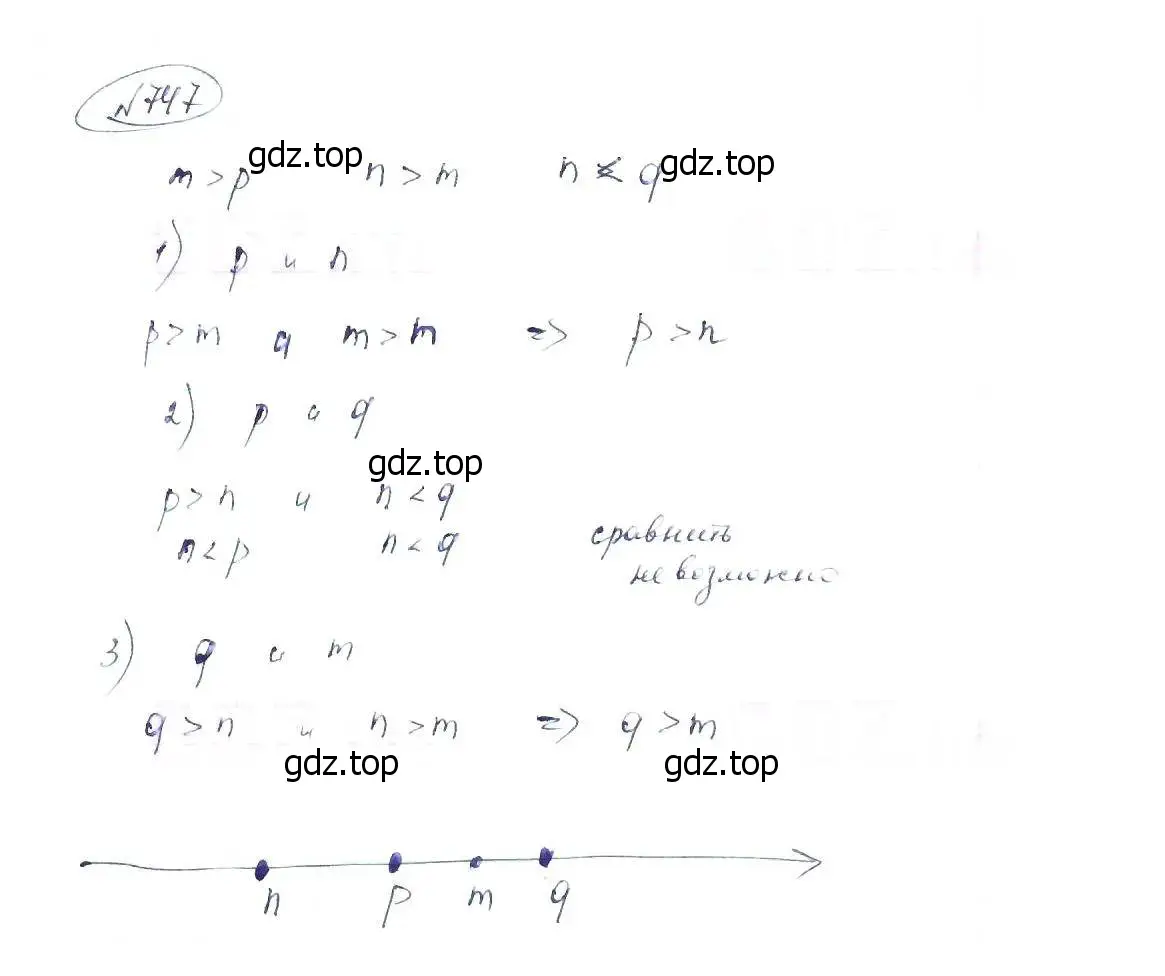 №747
m > p n > m n < q
1) p и n
p > m a m > m => p > n
2) p и q
p > n и n < q
n < p n < q сравнить
невозможно
3) q и m
q > n и n > m => q > m
n p m q
gdz.top gdz.top
gdz.top
gdz.top gdz.top